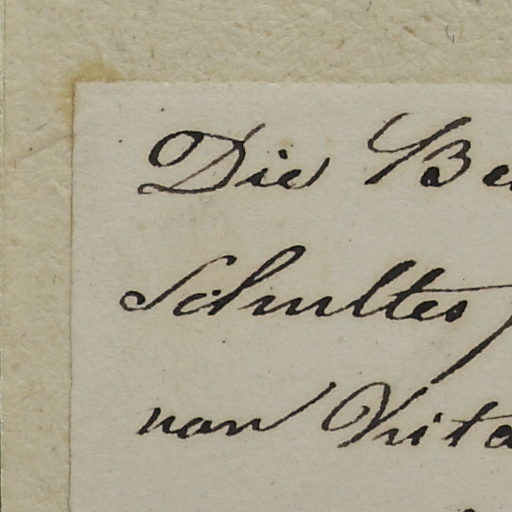 Die Be
Schultes
von Vita